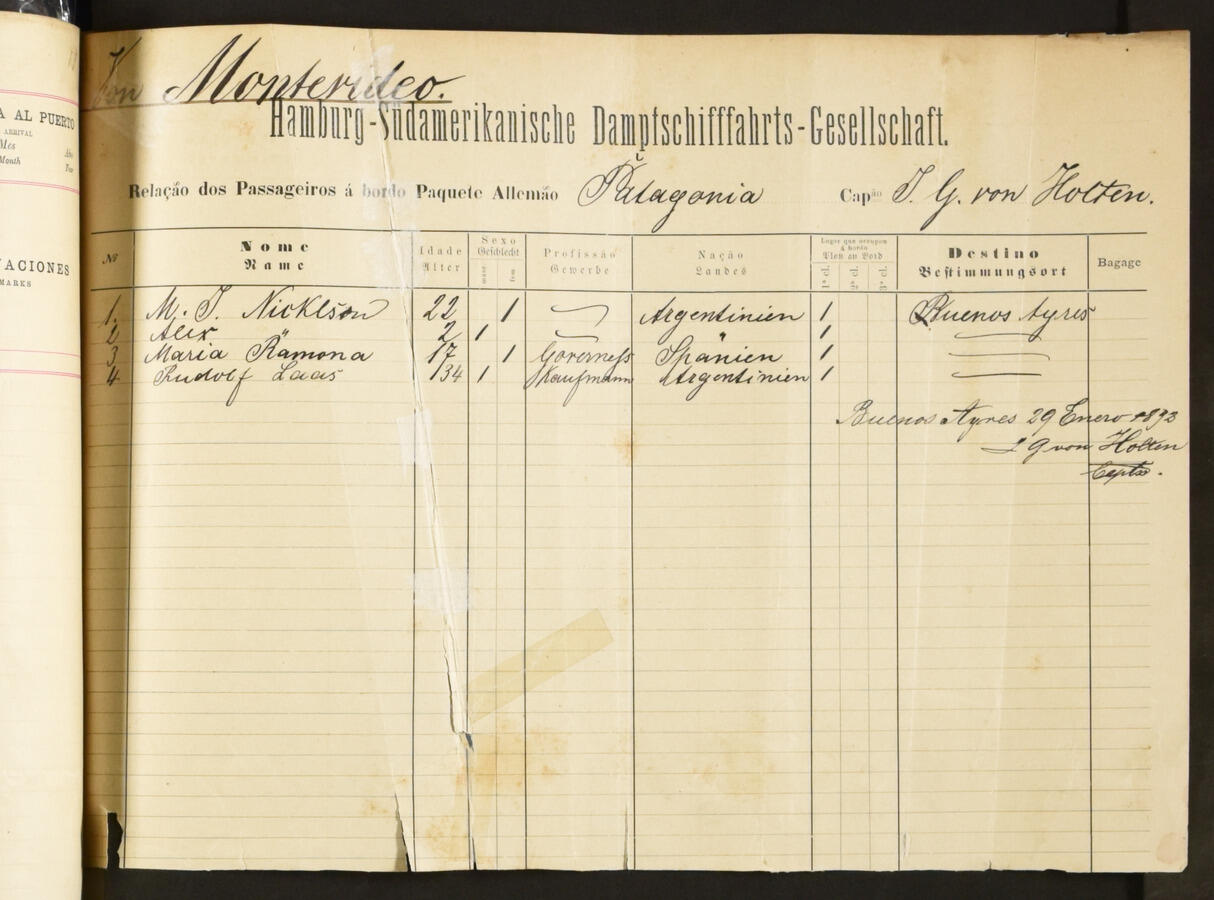 Von Montevideo.
Hamburg-Südamerikanische Dampfschifffahrts-Gesellschaft.
Relação dos Passageiros á bordo Paquete Allemão Patagonia Capão J. G. von Holten.
Nº Nome Name Idade Alter Sexo Geschlecht masc fem Profissão Gewerbe Nação Landes Lugar que occupou á bordo Platz an Bord 1ª cl. 2ª cl. 3ª cl. Destino Bestimmungsort Bagage
1. M. J. Nicklson 22 1 Argentinien 1 Buenos Ayres
2 Alex 2 1 1
3 Maria Ramona 17 1 Governess Spanien 1
4 Rudolf Laas 34 1 Kaufmann Argentinien 1
Buenos Ayres 29 Enero 1893
J G von Holten
Captn.
A AL PUERTO
ARRIVAL
Mes
Month
VACIONES
MARKS